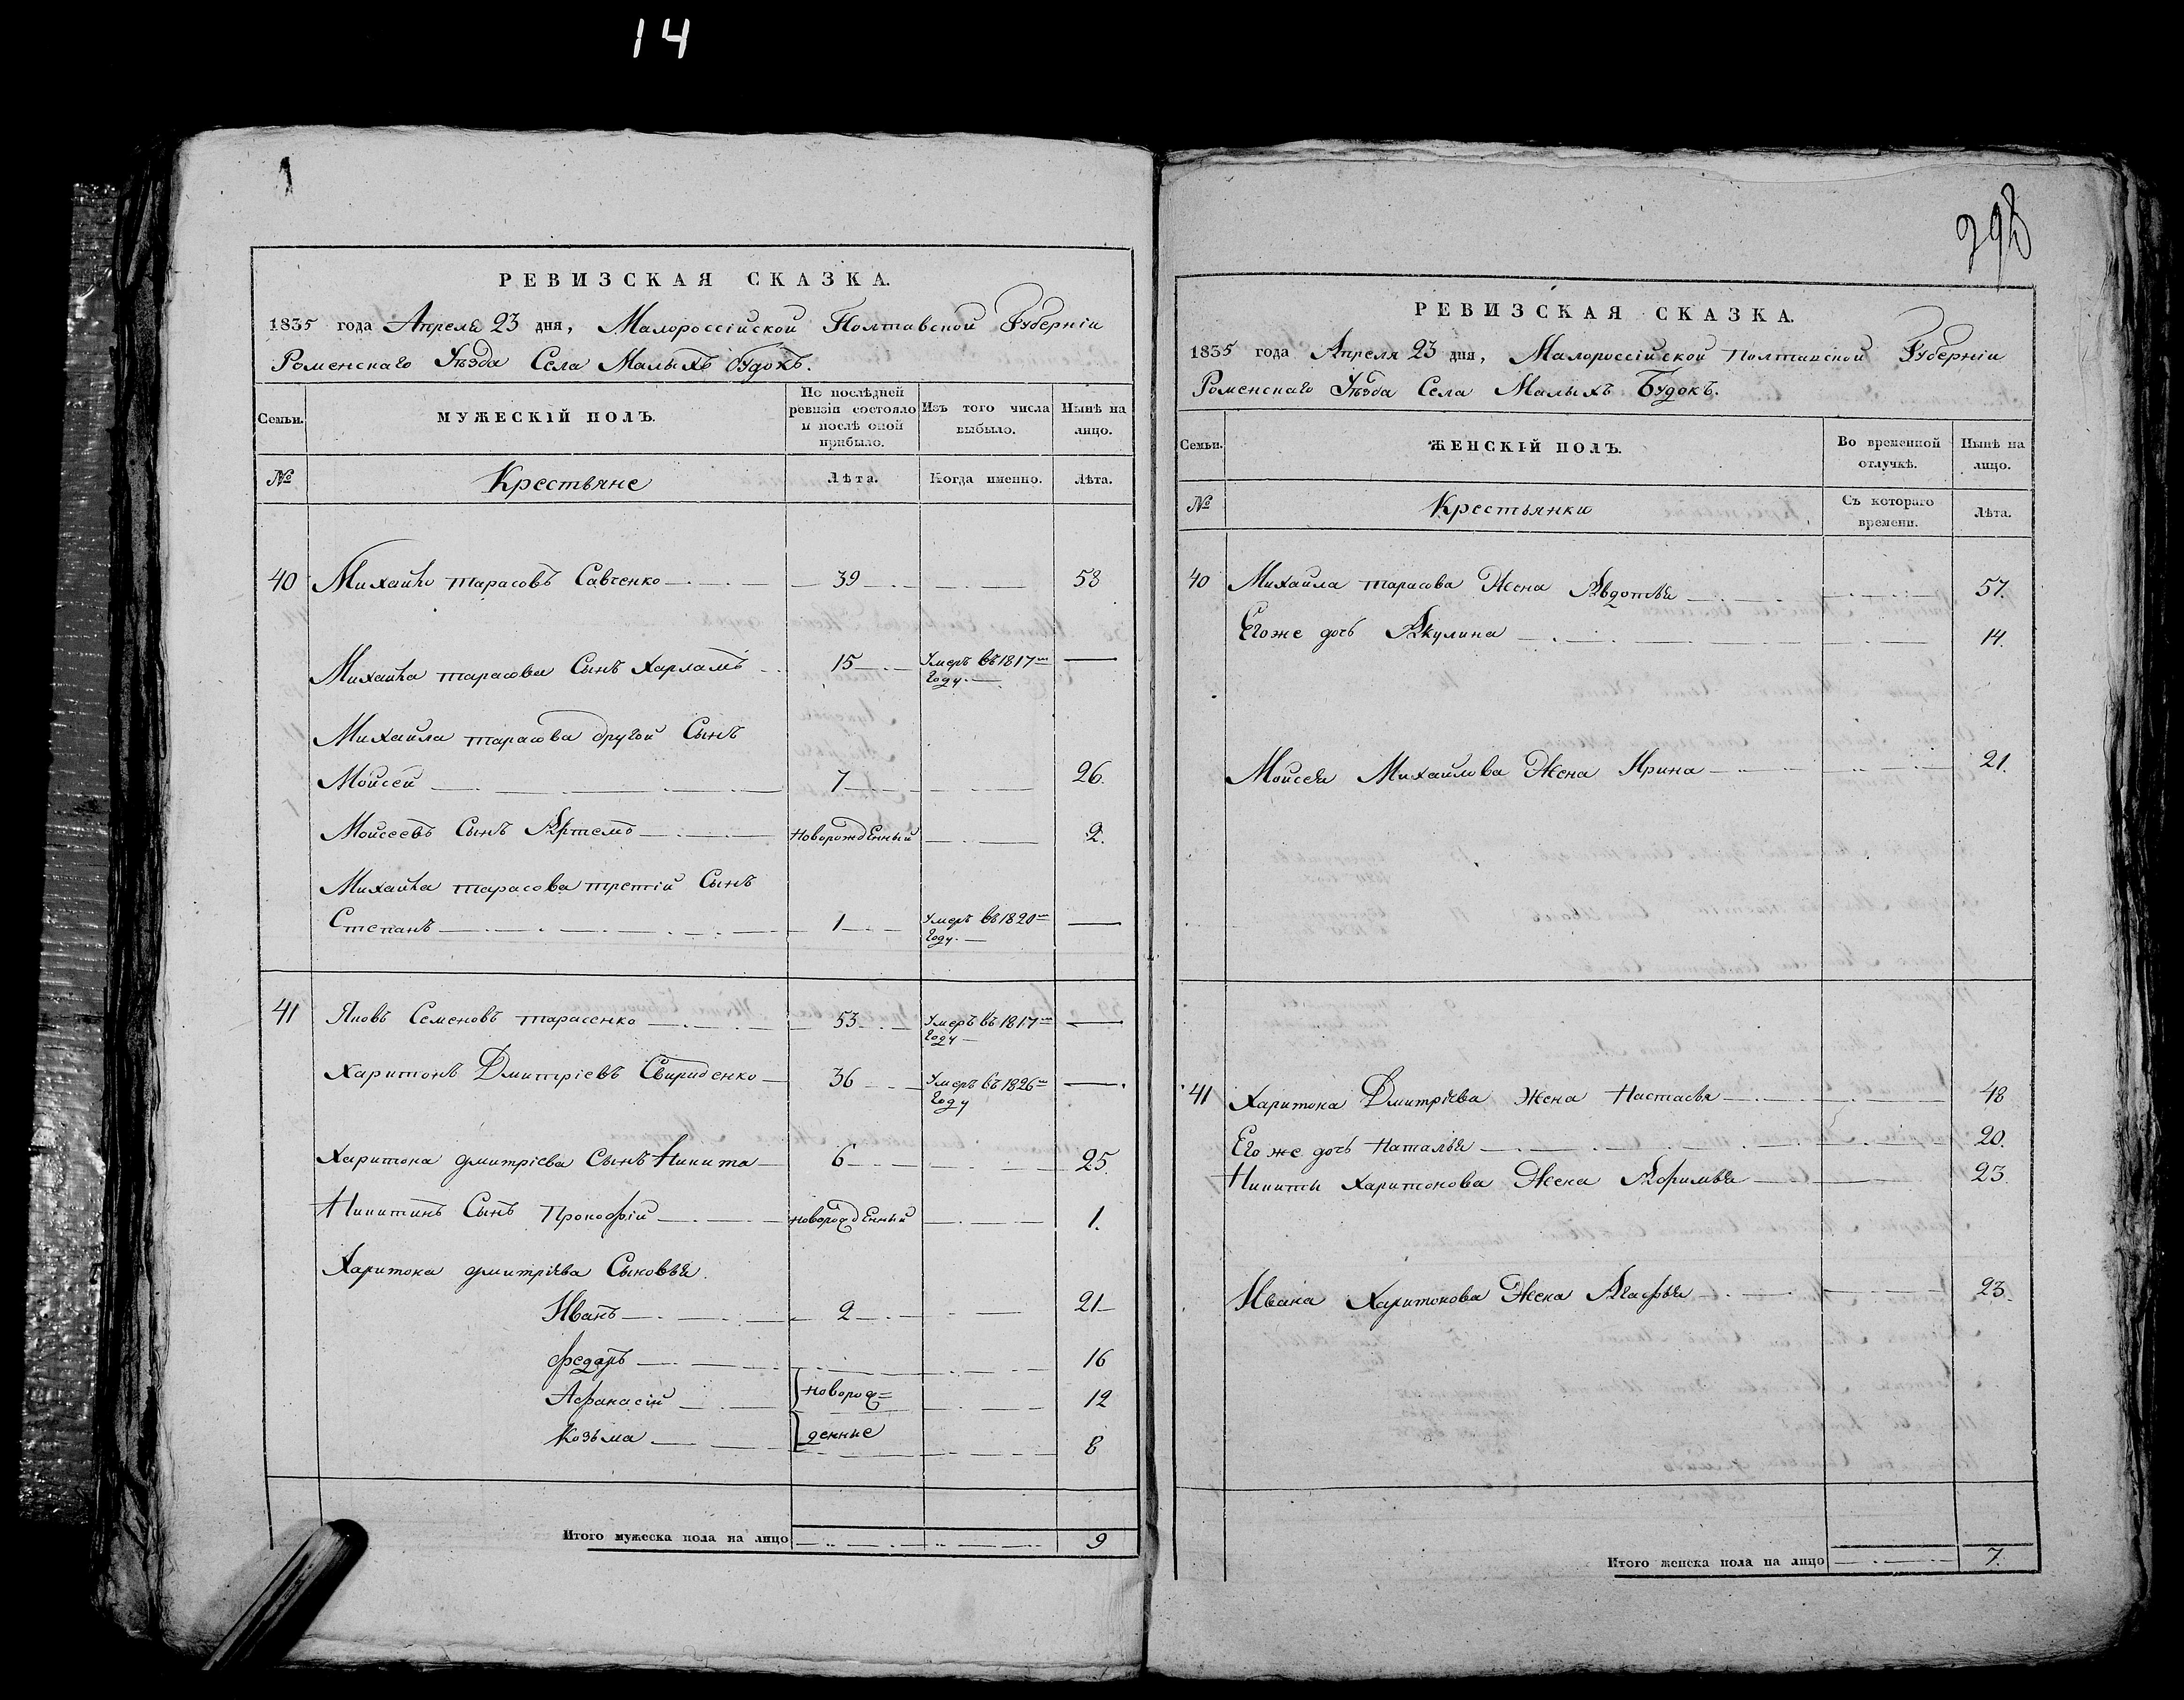 14
298
РЕВИЗСКАЯ СКАЗКА.
1835 года Апреля 23 дня, Малороссійской Полтавской Губерніи
Роменскаго Уѣзда Села Малыхъ Будокъ.
Семьи. МУЖЕСКІЙ ПОЛЪ. По послѣдней ревизіи состояло и послѣ оной прибыло. Изъ того числа выбыло. Нынѣ на лицо.
№ Крестьяне Лѣта. Когда именно. Лѣта.
40 Михайло тарасовъ Савченко 39 58
Михайла тарасова Сынъ Харламъ 15 Умеръ въ 1817м Году.
Михайла тарасова другой Сынъ
Мойсей 7 26.
Мойсеевъ Сынъ Артемъ новорожденный 2.
Михайла тарасова третій Сынъ
Степанъ 1 Умеръ въ 1820м Году.
41 Яковъ Семеновъ тарасенко 53 Умеръ въ 1817м Году
Харитонъ Дмитріевъ Свириденко 36 Умеръ въ 1826м Году
Харитона дмитріева Сынъ Никита 6 25.
Никитинъ Сынъ Прокофій новорожденный 1.
Харитона дмитріева Сыновья
Иванъ 2 21
Федоръ 16
Афанасій новорож= 12
Козьма денные 8
Итого мужеска пола на лицо 9
РЕВИЗСКАЯ СКАЗКА.
1835 года Апреля 23 дня, Малороссійской Полтавской Губерніи
Роменскаго Уѣзда Села Малыхъ Будокъ.
Семьи. ЖЕНСКІЙ ПОЛЪ. Во временной отлучкѣ. Нынѣ на лицо.
№ Крестьянки Съ котораго времени. Лѣта.
40 Михайла тарасова Жена Авдотья 57.
Егоже дочь Акулина 14.
Мойсея Михайлова Жена Ирина 21.
41 Харитона Дмитріева Жена Настасья 48
Его же дочь Наталья 20.
Никиты Харитонова Жена Афимья 23
Ивана Харитонова Жена Агафья 23.
Итого женска пола на лицо 7.